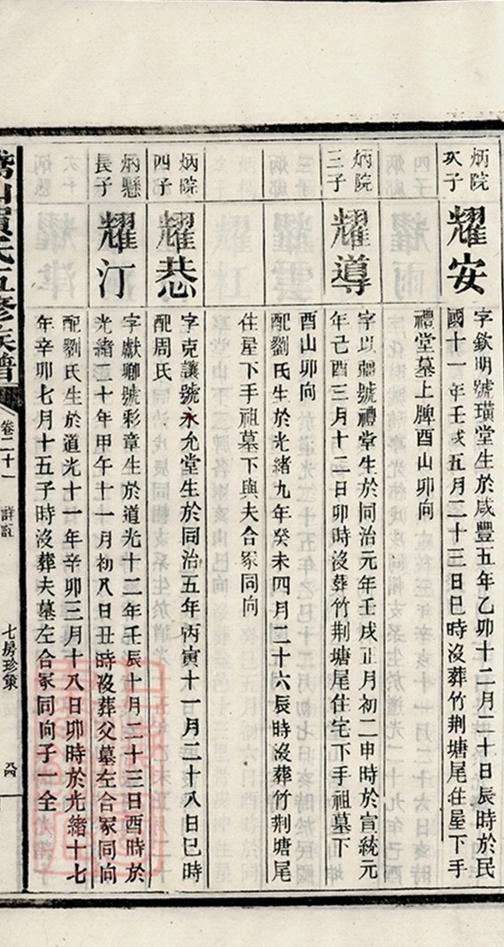 炳院
次子
耀安
字欽明號璜堂生於咸豐五年乙卯十二月二十日辰時於民
國十一年壬戌五月二十三日巳時沒葬竹荆塘尾住屋下手
禮堂墓上脾酉山卯向
炳院
三子
耀導
字以疆號禮堂生於同治元年壬戌正月初二申時於宣統元
年己酉三月十三日卯時沒葬竹荆塘尾住宅下手祖墓下
酉山卯向
配劉氏生於光緒九年癸未四月二十六辰時沒葬竹荆塘尾
住屋下手祖墓下與夫合冢同向
炳院
四子
耀恭
字克讓號永允堂生於同治五年丙寅十一月二十八日巳時
配周氏
炳懸
長子
耀汀
字獻卿號彩章生於道光十二年壬辰十月二十三日酉時於
光緒二十年甲午十一月初八日丑時歿葬父墓左合冢同向
配劉氏生於道光十一年辛卯三月十八日卯時於光緒十七
年辛卯七月十五子時沒葬夫墓左合冢同向子一全
氏五修族譜
卷二十一
詳註
七房珍策